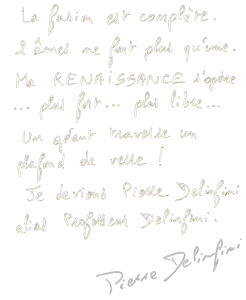 La fusion est complète.
2 âmes ne font plus qu'une.
Ma RENAISSANCE s'opère
... plus fort... plus libre...
Un géant traverse un
plafond de verre !
Je deviens Pierre Delinfini
alias Professeur Delinfini.
Pierre Delinfini